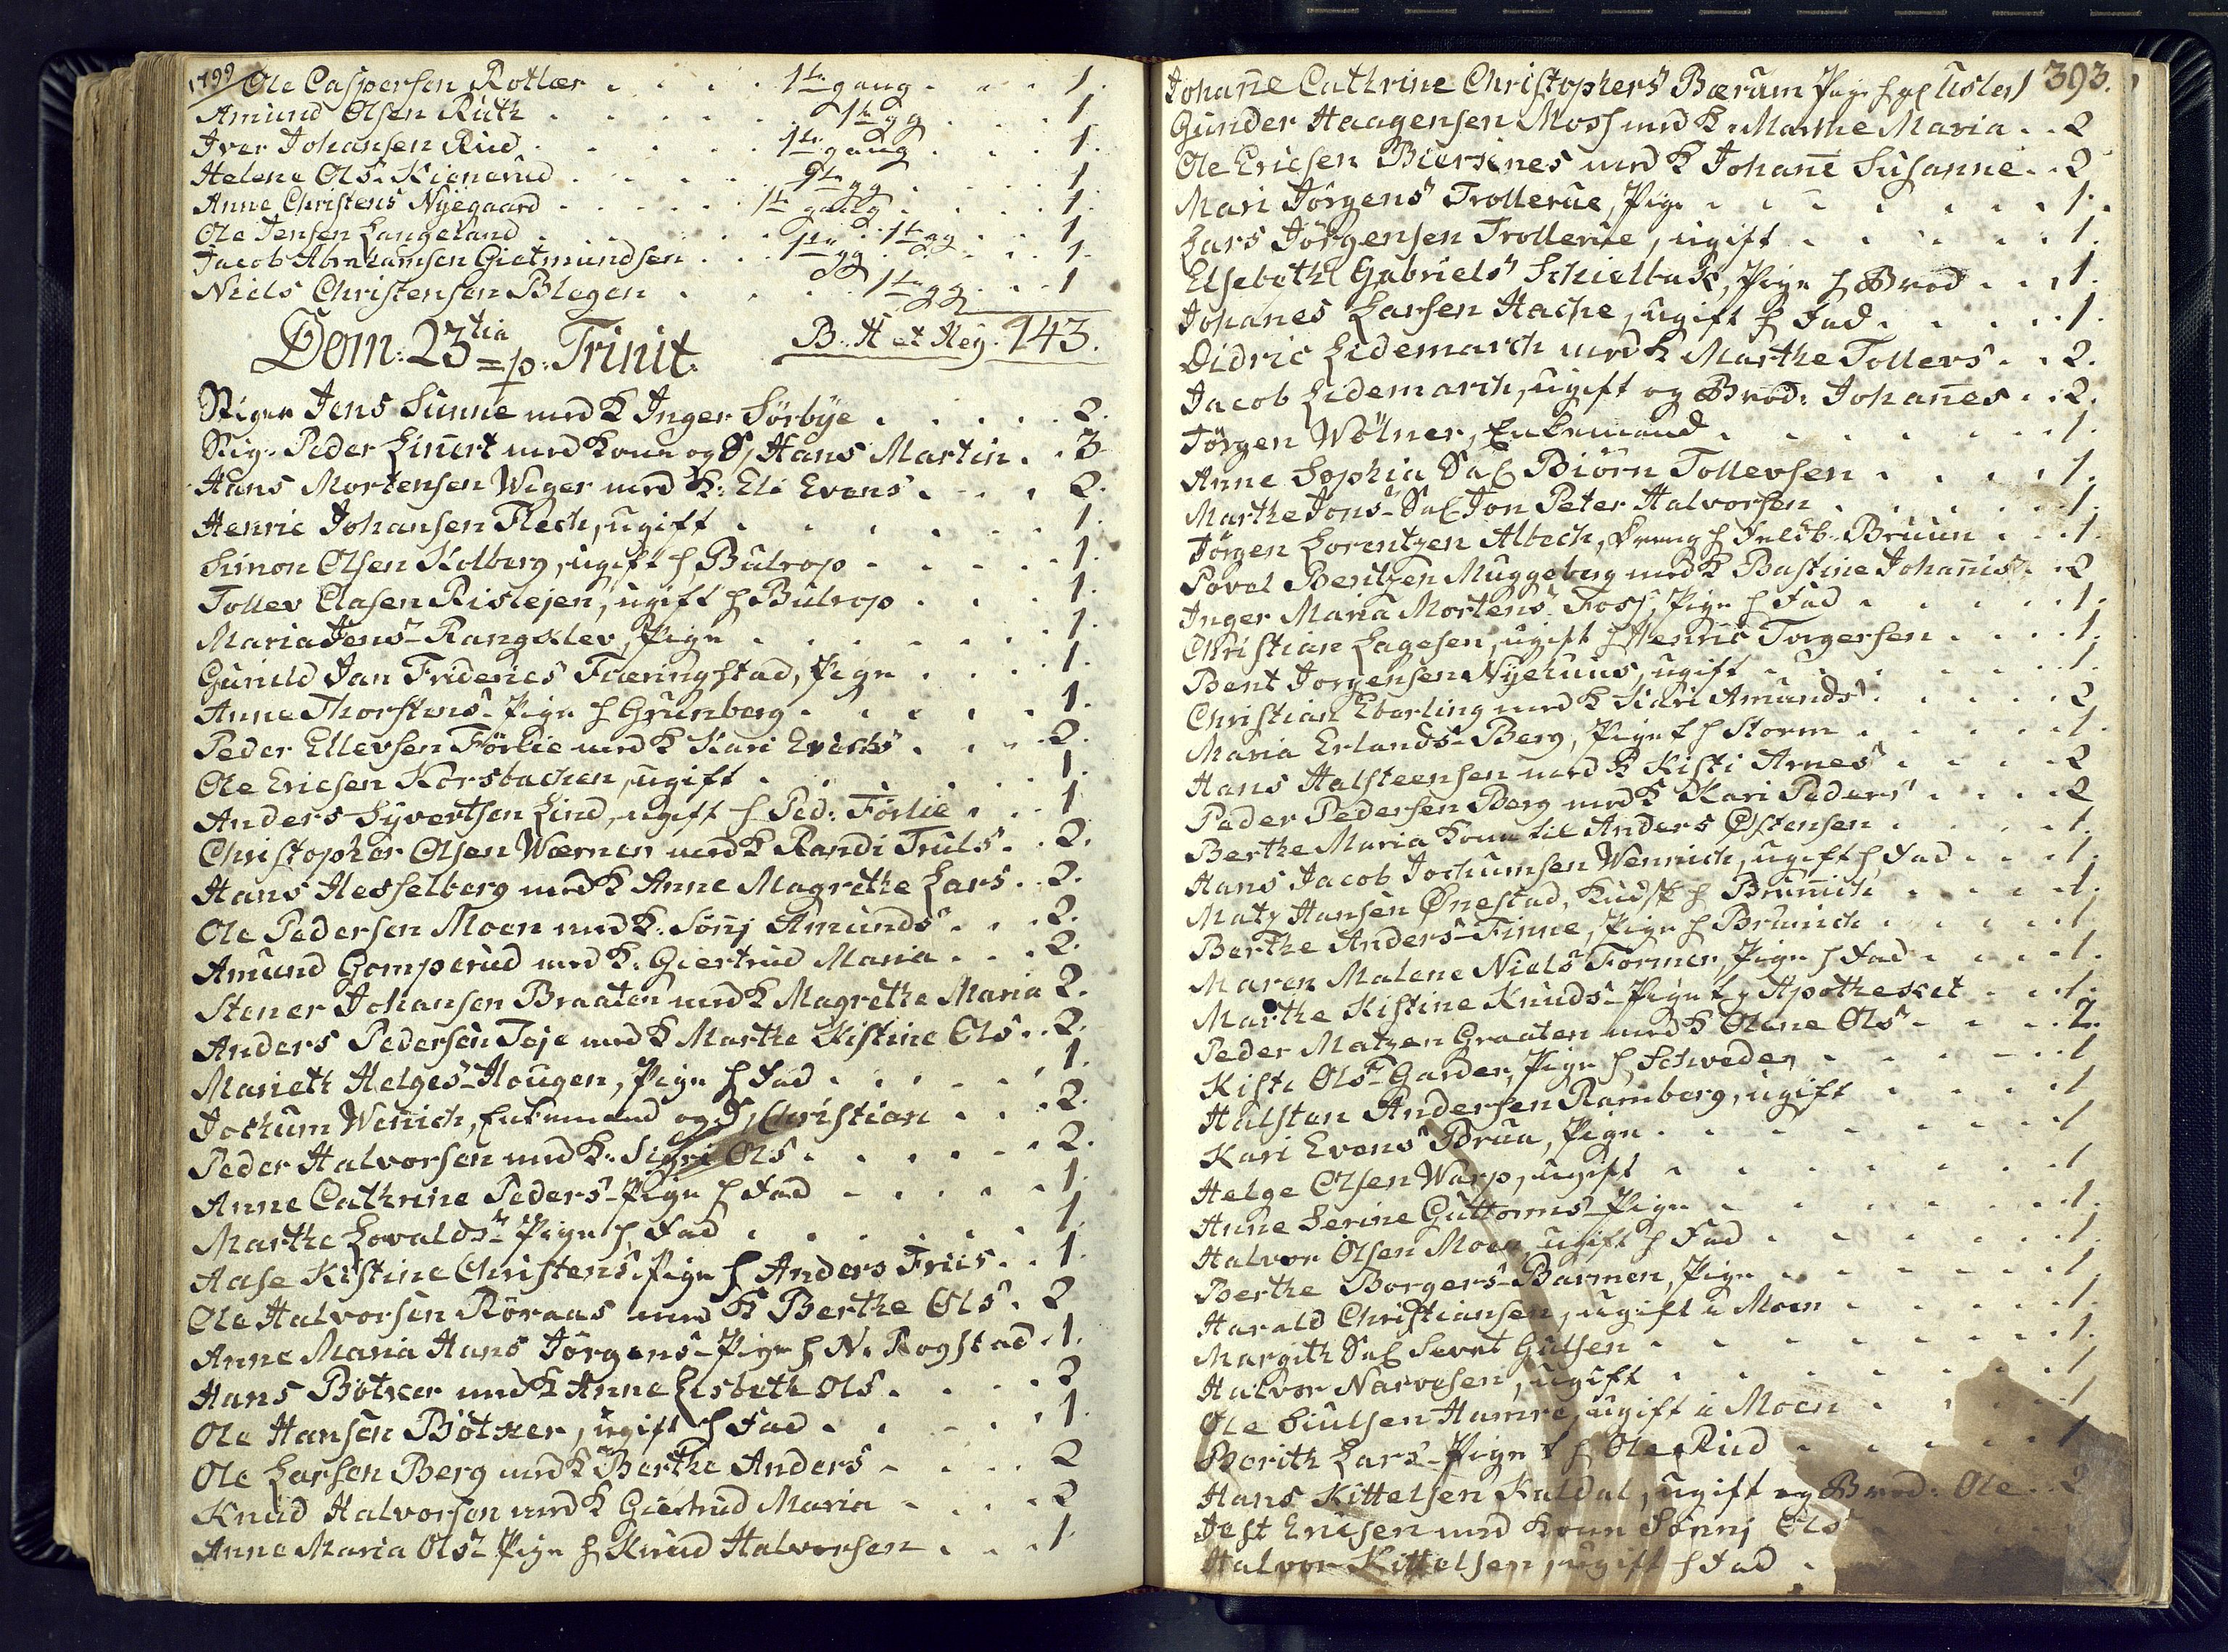 1799 Ole Caspersen Rotlær . . . . 1te gang . . . 1.
Amund Olsen Ruth . . . . . 1te gg . . . 1
Iver Johansen Rud . . . . 1te gang . . . 1.
Helene Ols: Kienerud . . . . gg . . . 1
Anne Christens Nÿegaard . . . . 1te gang . . . 1.
Ole Jensen Langeland . . . . 1te gg . . 1
Jacob Abrahamsen Gietmundsen . . . 1te gg . . . 1.
Niels Christensen Blegen . . . . 1te gg . . . 1
Dom: 23tia p: Trinit. B. H et Heÿ. 143.
Stiger Jens Sunne med K Inger Sörbÿe . . . . 2.
Stig. Peder Linnert med Kone og S, Hans Martin . . 3
Hans Mortensen Weger med K: Eli Evens . . . . 2.
Henric Johansen Flech, ugift . . . . . . 1.
Simon Olsen Kolberg, ugift h, Bulrop . . . . . 1.
Tollev Clasen Rislejen, ugift h Bulrop . . . . 1.
Maria Jens- Rangklev, Pige . . . . . . 1.
Gunild Jan Frideries Fræringstad, Pige . . . 1.
Anne Thorstens- Pige h Grunberg . . . . . 1.
Peder Ellevsen Förlie med K Kari Erichs . . . 2.
Ole Ericsen Korsbachen, ugift . . . . . . 1.
Anders Sÿvertsen Lind, ugift h Ped: Förlie . . . 1
Christopher Olsen Wærner med K Randi Truls . . 2.
Hans Hesselberg med K Anne Magrethe Lars . . 2.
Ole Pedersen Moen med K: Sönj Amunds . . . 2.
Amund Gomperud med K. Giertrud Maria . . . 2.
Stener Johansen Braaten med K Magrethe Maria 2.
Anders Pedersen Teje med K Marthe Kistine Ols . . 2.
Marieth Helges- Hougen, Pige h Fad . . . . . 1.
Jochum Wenich, Enkemand og S, Christian . . . 2.
Peder Halvorsen med K: Sigri Ols . . . . . 2.
Anne Cathrine Peders- Pige h Fad . . . . . 1.
Marthe Lovalds- Pige h, Fad . . . . . . 1
Aase Kistine Christens- Pige h Anders Friis . . 1.
Ole Halvorsen Röraas med K Berthe Ols . 2
Anne Maria Hans Jörgens- Pige h N. Rogstad . 1.
Hans Bötker med K Anne Lisbeth Ols . . . . 2
Ole Hansen Bötker, ugift h Fad . . . . . 1.
Ole Larsen Berg med K Berthe Anders . . . . 2
Knud Halvorsen med K Giertrud Maria . . . . 2
Anne Maria Ols- Pige h Knud Halvorsen . . . 1.
Johane Cathrine Christophers Bærum Pige h 1 393.
Gunder Haagensen Moss med K. Marthe Maria . . 2
Ole Ericsen Biersnes med K Johane Susanne . . 2
Mari Jörgens Trollerue, Pige . . . . . . . 1.
Lars Jörgensen Trollerue, ugift . . . . . . 1.
Elsebeth Gabriels Schielbek, Pige h Brod . . . 1.
Johanes Larsen Hache, ugift h Fad . . . . . 1.
Didric Lidemarch med K Marthe Tollevs . . 2.
Jacob Lidemarch, ugift og Brod: Johanes . . 2.
Jörgen Wölner, Enkemand . . . . . . . 1.
Anne Sophia Sal Biörn Tollevsen . . . . 1.
Marthe Jons- Sal Jon Peter Halvorsen . . . . . 1.
Jörgen Lorentzen Albech, Dreng h Bruun . . . 1.
Povel Bentzen Muggeberg med K Bastine Johannis . 2
Inger Maria Mortens- Foss, Pige h Fad . . . . 1.
Christian Lagesen, ugift h Henric Torgersen . . . . 1.
Bent Jorgensen Nÿehuus, ugift . . . . . . 1.
Christian Eberling med K Sidri Amunds . . . . 2
Maria Erlands- Berg, Pige h Storm . . . . . 1.
Hans Halsteensen med K Kisti Arnes . . . . 2
Peder Pedersen Berg med K Kari Peders . . . . 2
Berthe Maria Kone til Anders Östensen . . . . 1.
Hans Jacob Jochumsen Wennich, ugift h, Fad . . . 1.
Matz Hansen Önestad, Kudsk h Brunnich . . . . 1.
Berthe Anders- Finne, Pige h Brunich . . . . 1
Maren Malene Niels Former, Pige h Fad . . . . 1.
Marthe Kistine Knuds- Pige h Apotheket . . . 1.
Peder Matzen Graaten med K Olene Ols . . . . 2.
Kisti Ols- Garder, Pige h, Schweder . . . . . 1
Halsten Andersen Ramberg, ugift . . . . 1
Kari Evens Brua, Pige . . . . . . . 1
Helge Olsen Warp, ugift . . . . . . . 1
Anne Serine Guttorms- Pige . . . . . . 1.
Halvor Olsen Moen, ugift h Fad . . . . . 1.
Berthe Borgers- Barmen, Pige . . . . . . 1
Harald Christiansen, ugift i Moen . . . . . 1.
Margith Sal Sevet Gulsen . . . . . . . 1.
Halvor Narvesen, ugift . . . . . . . 1
Ole Siulsen Hamre, ugift i Moen . . . . . 1
Borith Lars- Pige h Ole Rud . . . . . 1
Hans Kittelsen Kaldal, ugift og Brod: Ole . . 2
Jest Ericsen med Kone Sönnj Ols
Halvor Kittelsen, ugift h Fad .